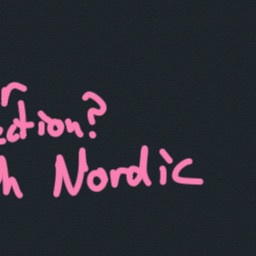 r
ection?
h Nordic